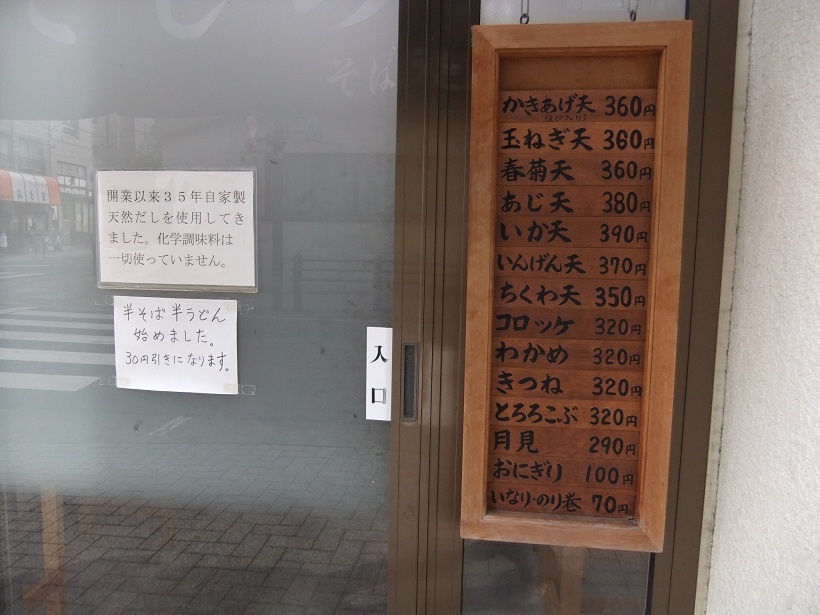 そば
開業以来35年自家製
天然だしを使用してき
ました。化学調味料は
一切使っていません。
半そば半うどん
始めました。
30円引きになります。
入口
かきあげ天 360円
(えび入り)
玉ねぎ天 360円
春菊天 360円
あじ天 380円
いか天 390円
いんげん天 370円
ちくわ天 350円
コロッケ 320円
わかめ 320円
きつね 320円
とろろこぶ 320円
月見 290円
おにぎり 100円
いなり・のり巻 70円